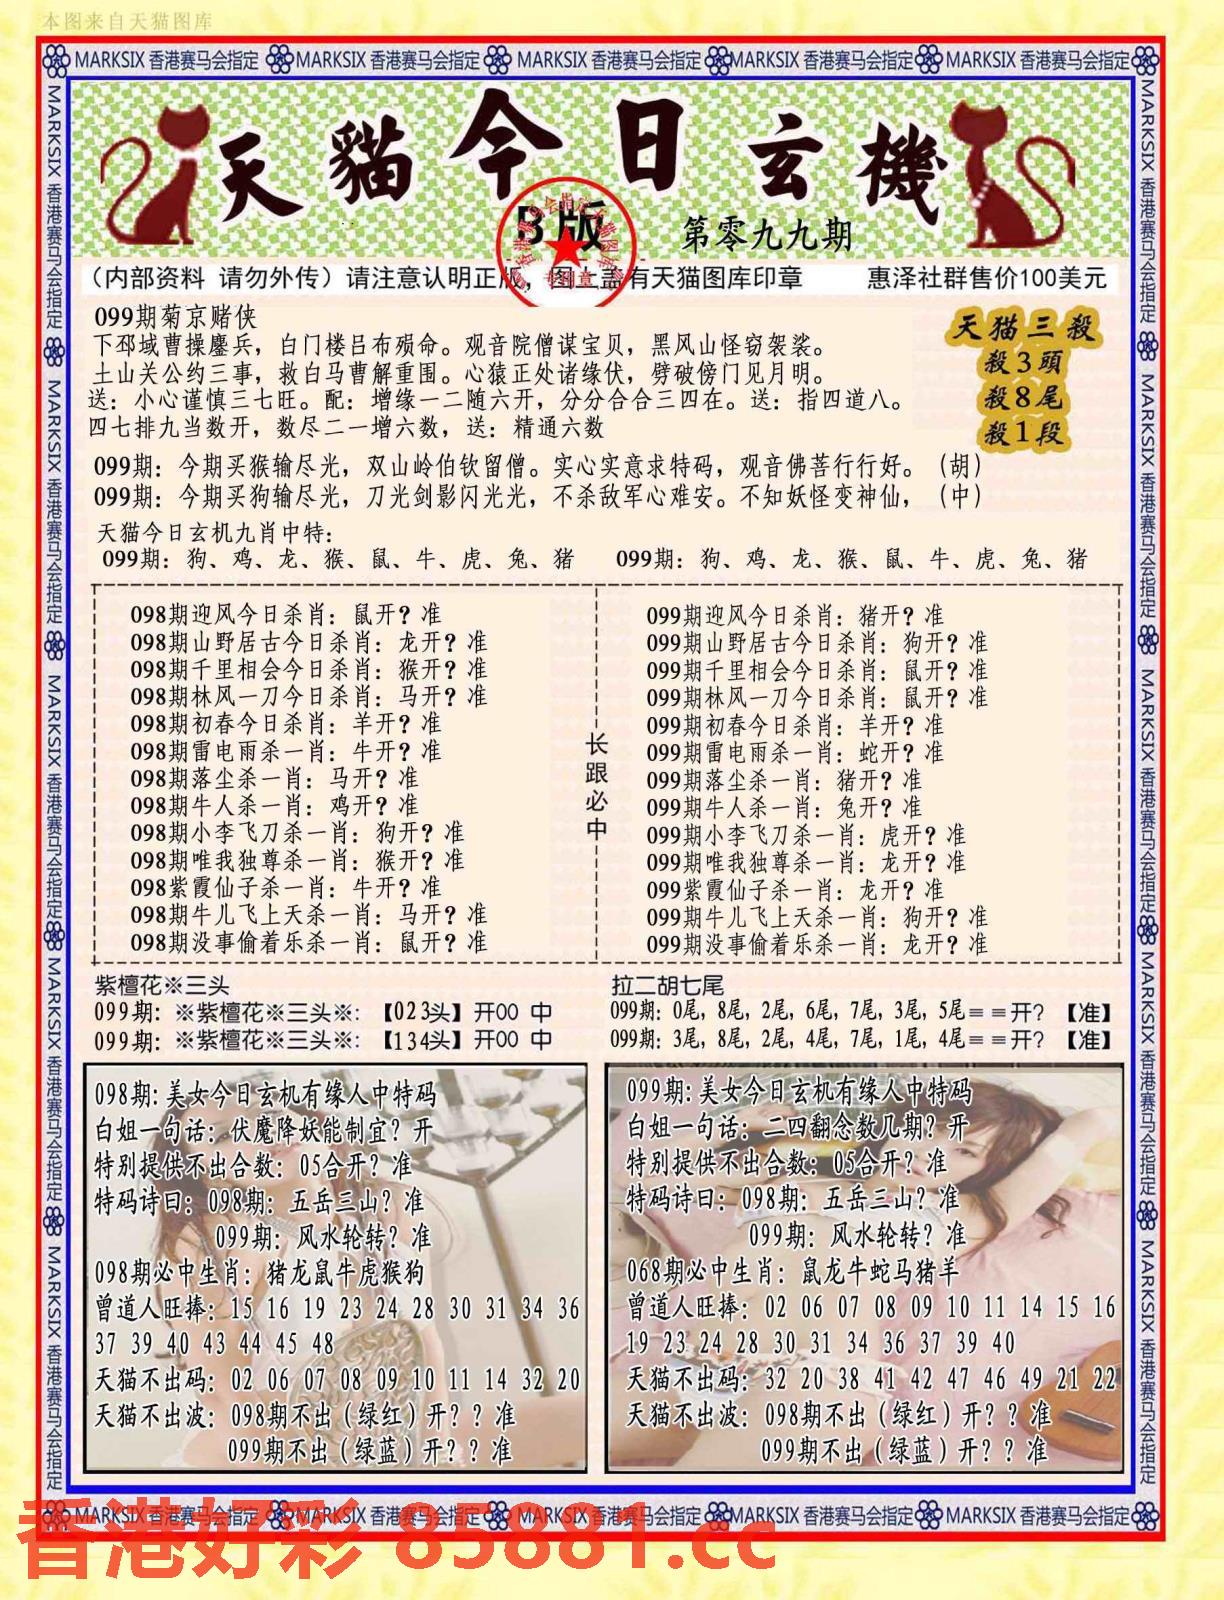 本图来自天猫图库
MARKSIX 香港赛马会指定 MARKSIX 香港赛马会指定 MARKSIX 香港赛马会指定 MARKSIX 香港赛马会指定 MARKSIX 香港赛马会指定
天貓今日玄機
B版
第零九九期
（内部资料 请勿外传）请注意认明正版，图上盖有天猫图库印章 惠泽社群售价100美元
099期菊京赌侠
下邳域曹操鏖兵，白门楼吕布殒命。观音院僧谋宝贝，黑风山怪窃袈裟。
土山关公约三事，救白马曹解重围。心猿正处诸缘伏，劈破傍门见月明。
送：小心谨慎三七旺。配：增缘一二随六开，分分合合三四在。送：指四道八。
四七排九当数开，数尽二一增六数，送：精通六数
天猫三殺
殺3頭
殺8尾
殺1段
099期：今期买猴输尽光，双山岭伯钦留僧。实心实意求特码，观音佛菩行行好。（胡）
099期：今期买狗输尽光，刀光剑影闪光光，不杀敌军心难安。不知妖怪变神仙，（中）
天猫今日玄机九肖中特：
099期：狗、鸡、龙、猴、鼠、牛、虎、兔、猪 099期：狗、鸡、龙、猴、鼠、牛、虎、兔、猪
098期迎风今日杀肖：鼠开？准
098期山野居古今日杀肖：龙开？准
098期千里相会今日杀肖：猴开？准
098期林风一刀今日杀肖：马开？准
098期初春今日杀肖：羊开？准
098期雷电雨杀一肖：牛开？准
098期落尘杀一肖：马开？准
098期牛人杀一肖：鸡开？准
098期小李飞刀杀一肖：狗开？准
098期唯我独尊杀一肖：猴开？准
098紫霞仙子杀一肖：牛开？准
098期牛儿飞上天杀一肖：马开？准
098期没事偷着乐杀一肖：鼠开？准
长跟必中
099期迎风今日杀肖：猪开？准
099期山野居古今日杀肖：狗开？准
099期千里相会今日杀肖：鼠开？准
099期林风一刀今日杀肖：鼠开？准
099期初春今日杀肖：羊开？准
099期雷电雨杀一肖：蛇开？准
099期落尘杀一肖：猪开？准
099期牛人杀一肖：兔开？准
099期小李飞刀杀一肖：虎开？准
099期唯我独尊杀一肖：龙开？准
099紫霞仙子杀一肖：龙开？准
099期牛儿飞上天杀一肖：狗开？准
099期没事偷着乐杀一肖：龙开？准
紫檀花※三头
099期：※紫檀花※三头※：【023头】开00 中
099期：※紫檀花※三头※：【134头】开00 中
拉二胡七尾
099期：0尾，8尾，2尾，6尾，7尾，3尾，5尾＝＝开？【准】
099期：3尾，8尾，2尾，4尾，7尾，1尾，4尾＝＝开？【准】
098期：美女今日玄机有缘人中特码
白姐一句话：伏魔降妖能制宜？开
特别提供不出合数：05合开？准
特码诗曰：098期：五岳三山？准
099期：风水轮转？准
098期必中生肖：猪龙鼠牛虎猴狗
曾道人旺捧：15 16 19 23 24 28 30 31 34 36
37 39 40 43 44 45 48
天猫不出码：02 06 07 08 09 10 11 14 32 20
天猫不出波：098期不出（绿红）开？？准
099期不出（绿蓝）开？？准
099期：美女今日玄机有缘人中特码
白姐一句话：二四翻念数几期？开
特别提供不出合数：05合开？准
特码诗曰：098期：五岳三山？准
099期：风水轮转？准
068期必中生肖：鼠龙牛蛇马猪羊
曾道人旺捧：02 06 07 08 09 10 11 14 15 16
19 23 24 28 30 31 34 36 37 39 40
天猫不出码：32 20 38 41 42 47 46 49 21 22
天猫不出波：098期不出（绿红）开？？准
099期不出（绿蓝）开？？准
MARKSIX 香港赛马会指定 MARKSIX 香港赛马会指定 MARKSIX 香港赛马会指定 MARKSIX 香港赛马会指定 MARKSIX 香港赛马会指定
香港好彩 85881.cc